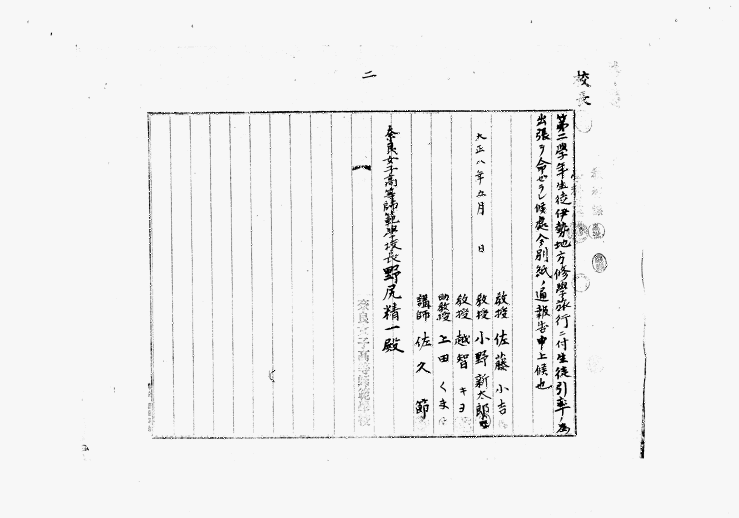 二
校長
第二學年生徒伊勢地方修學旅行ニ付生徒引率ノ為
出張ヲ命ゼラレ候處今別紙ノ通報告申上候也
大正八年五月　日
教授 佐藤小吉
教授 小野新太郎
教授 越智キヨ
助教授 上田くま
講師 佐久節
奈良女子高等師範學校長野尻精一殿
奈良女子高等師範學校